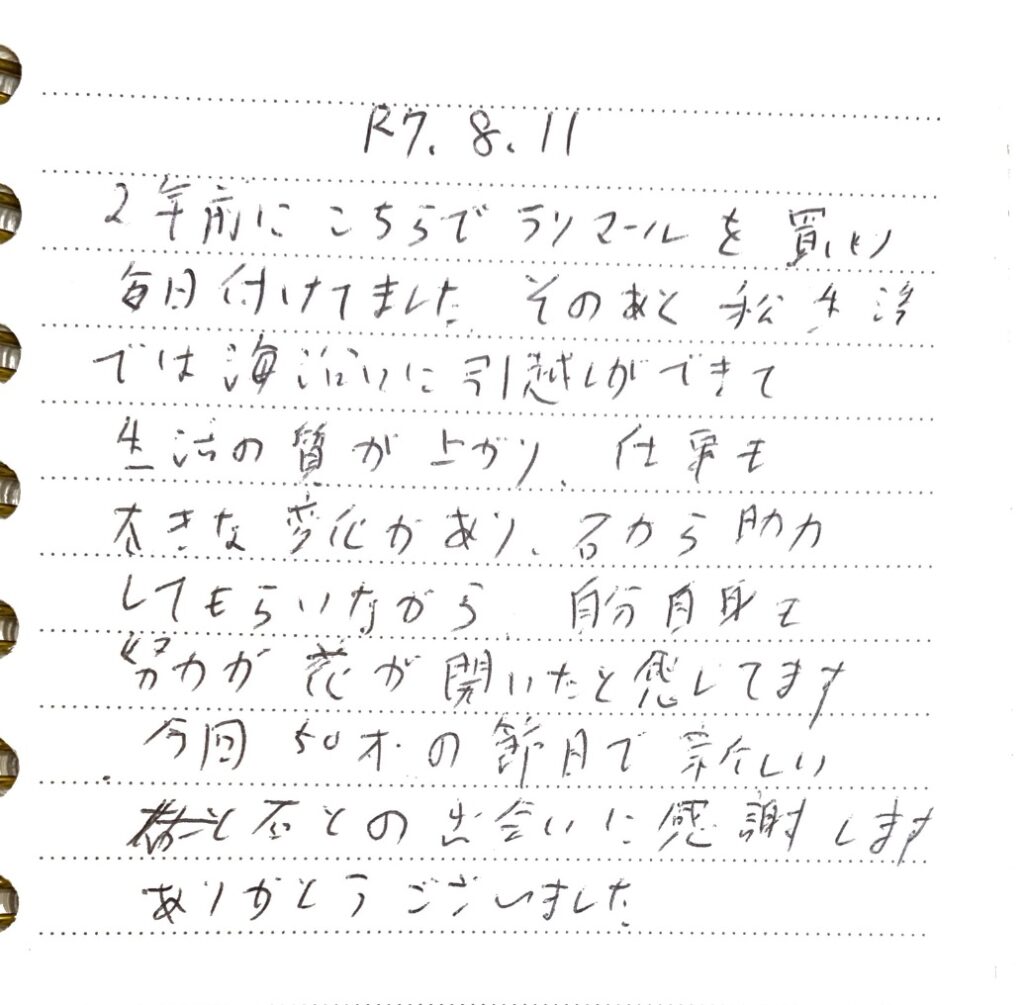 R7.8.11
2年前にこちらでラリマールを買い
毎日付けてました そのあと 私生活
では海沿いに引越しができて
生活の質が上がり、仕事も
大きな変化があり、石から助力
してもらいながら、自分自身も
努力が花が開いたと感じてます
今回50才の節目で新しい
石との出会いに感謝します
ありがとうございました